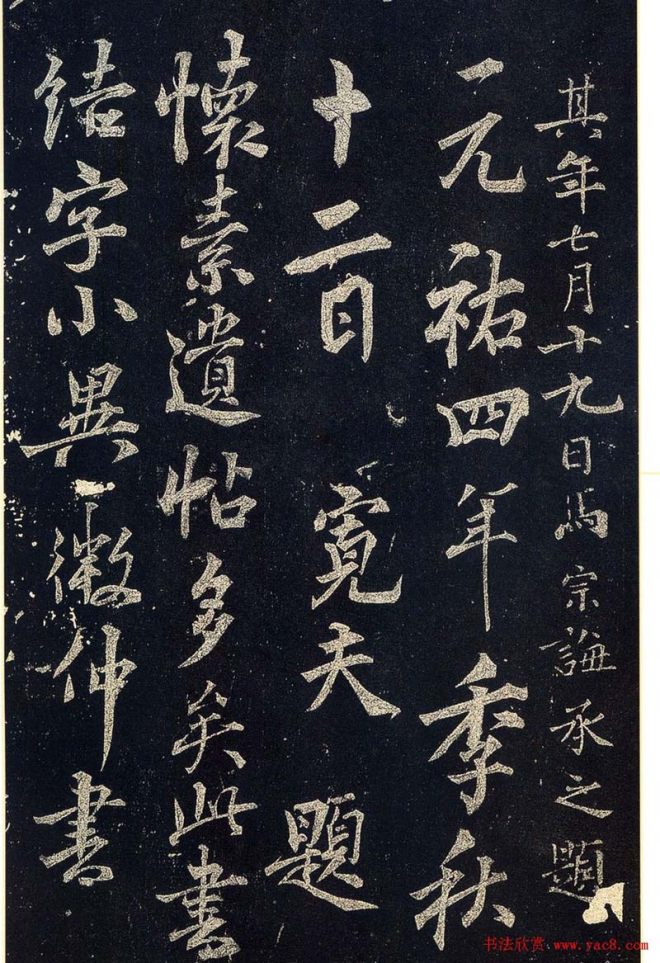 其年七月十九日馬宗誨承之題
元祐四年季秋
十二日寬夫題
懷素遺帖多矣此書
結字小異微仲書
书法欣赏 www.yac8.com